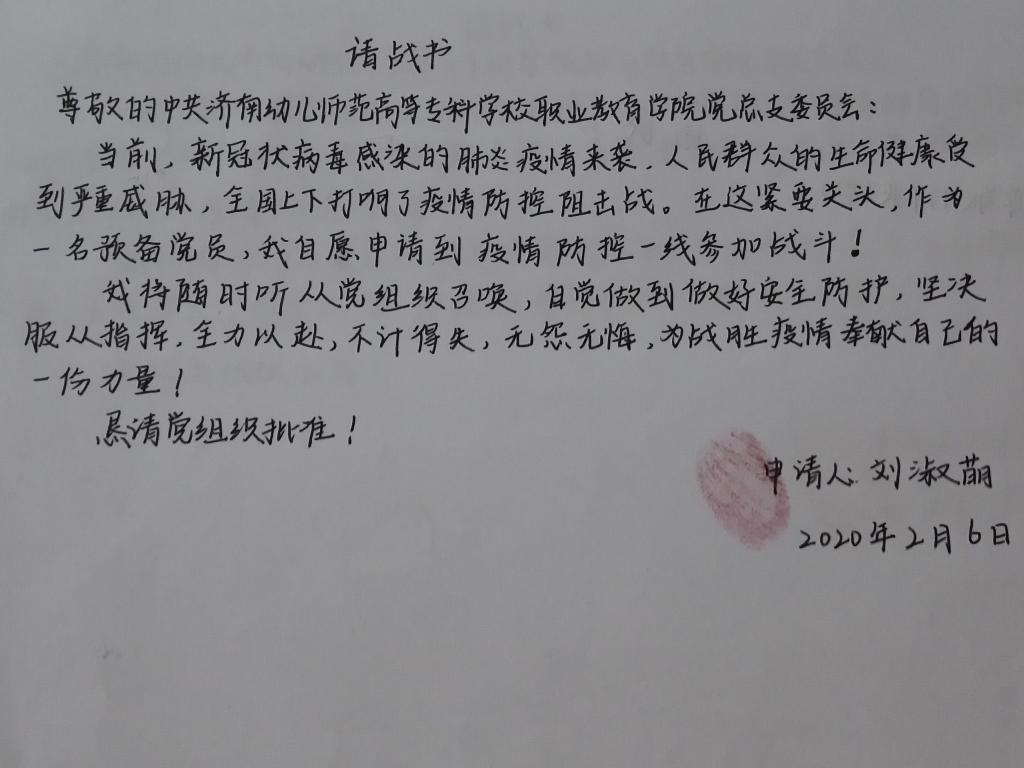 请战书
尊敬的中共济南幼儿师范高等专科学校职业教育学院党总支委员会：
当前，新冠状病毒感染的肺炎疫情来袭，人民群众的生命健康受
到严重威胁，全国上下打响了疫情防控阻击战。在这紧要关头，作为
一名预备党员，我自愿申请到疫情防控一线参加战斗！
我将随时听从党组织召唤，自觉做到做好安全防护，坚决
服从指挥，全力以赴，不计得失，无怨无悔，为战胜疫情奉献自己的
一份力量！
恳请党组织批准！
申请人：刘淑萌
2020年2月6日